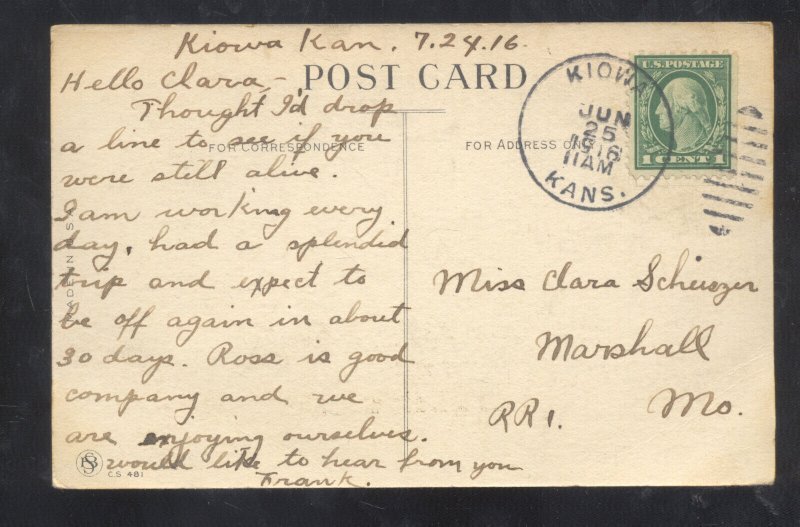 Kiowa Kan. 7.24.16.
Hello Clara, –
POST CARD
Thought I'd drop
a line to see if you
FOR CORRESPONDENCE
were still alive.
I am working every
day, had a splendid
trip and expect to
be off again in about
30 days. Ross is good
company and we
are enjoying ourselves.
would like to hear from you
Frank.
C.S. 481
FOR ADDRESS ONLY
KIOWA
JUN
25
1916
11AM
KANS.
U.S. POSTAGE
1 CENT 1
Miss Clara
Marshall
RR 1. Mo.